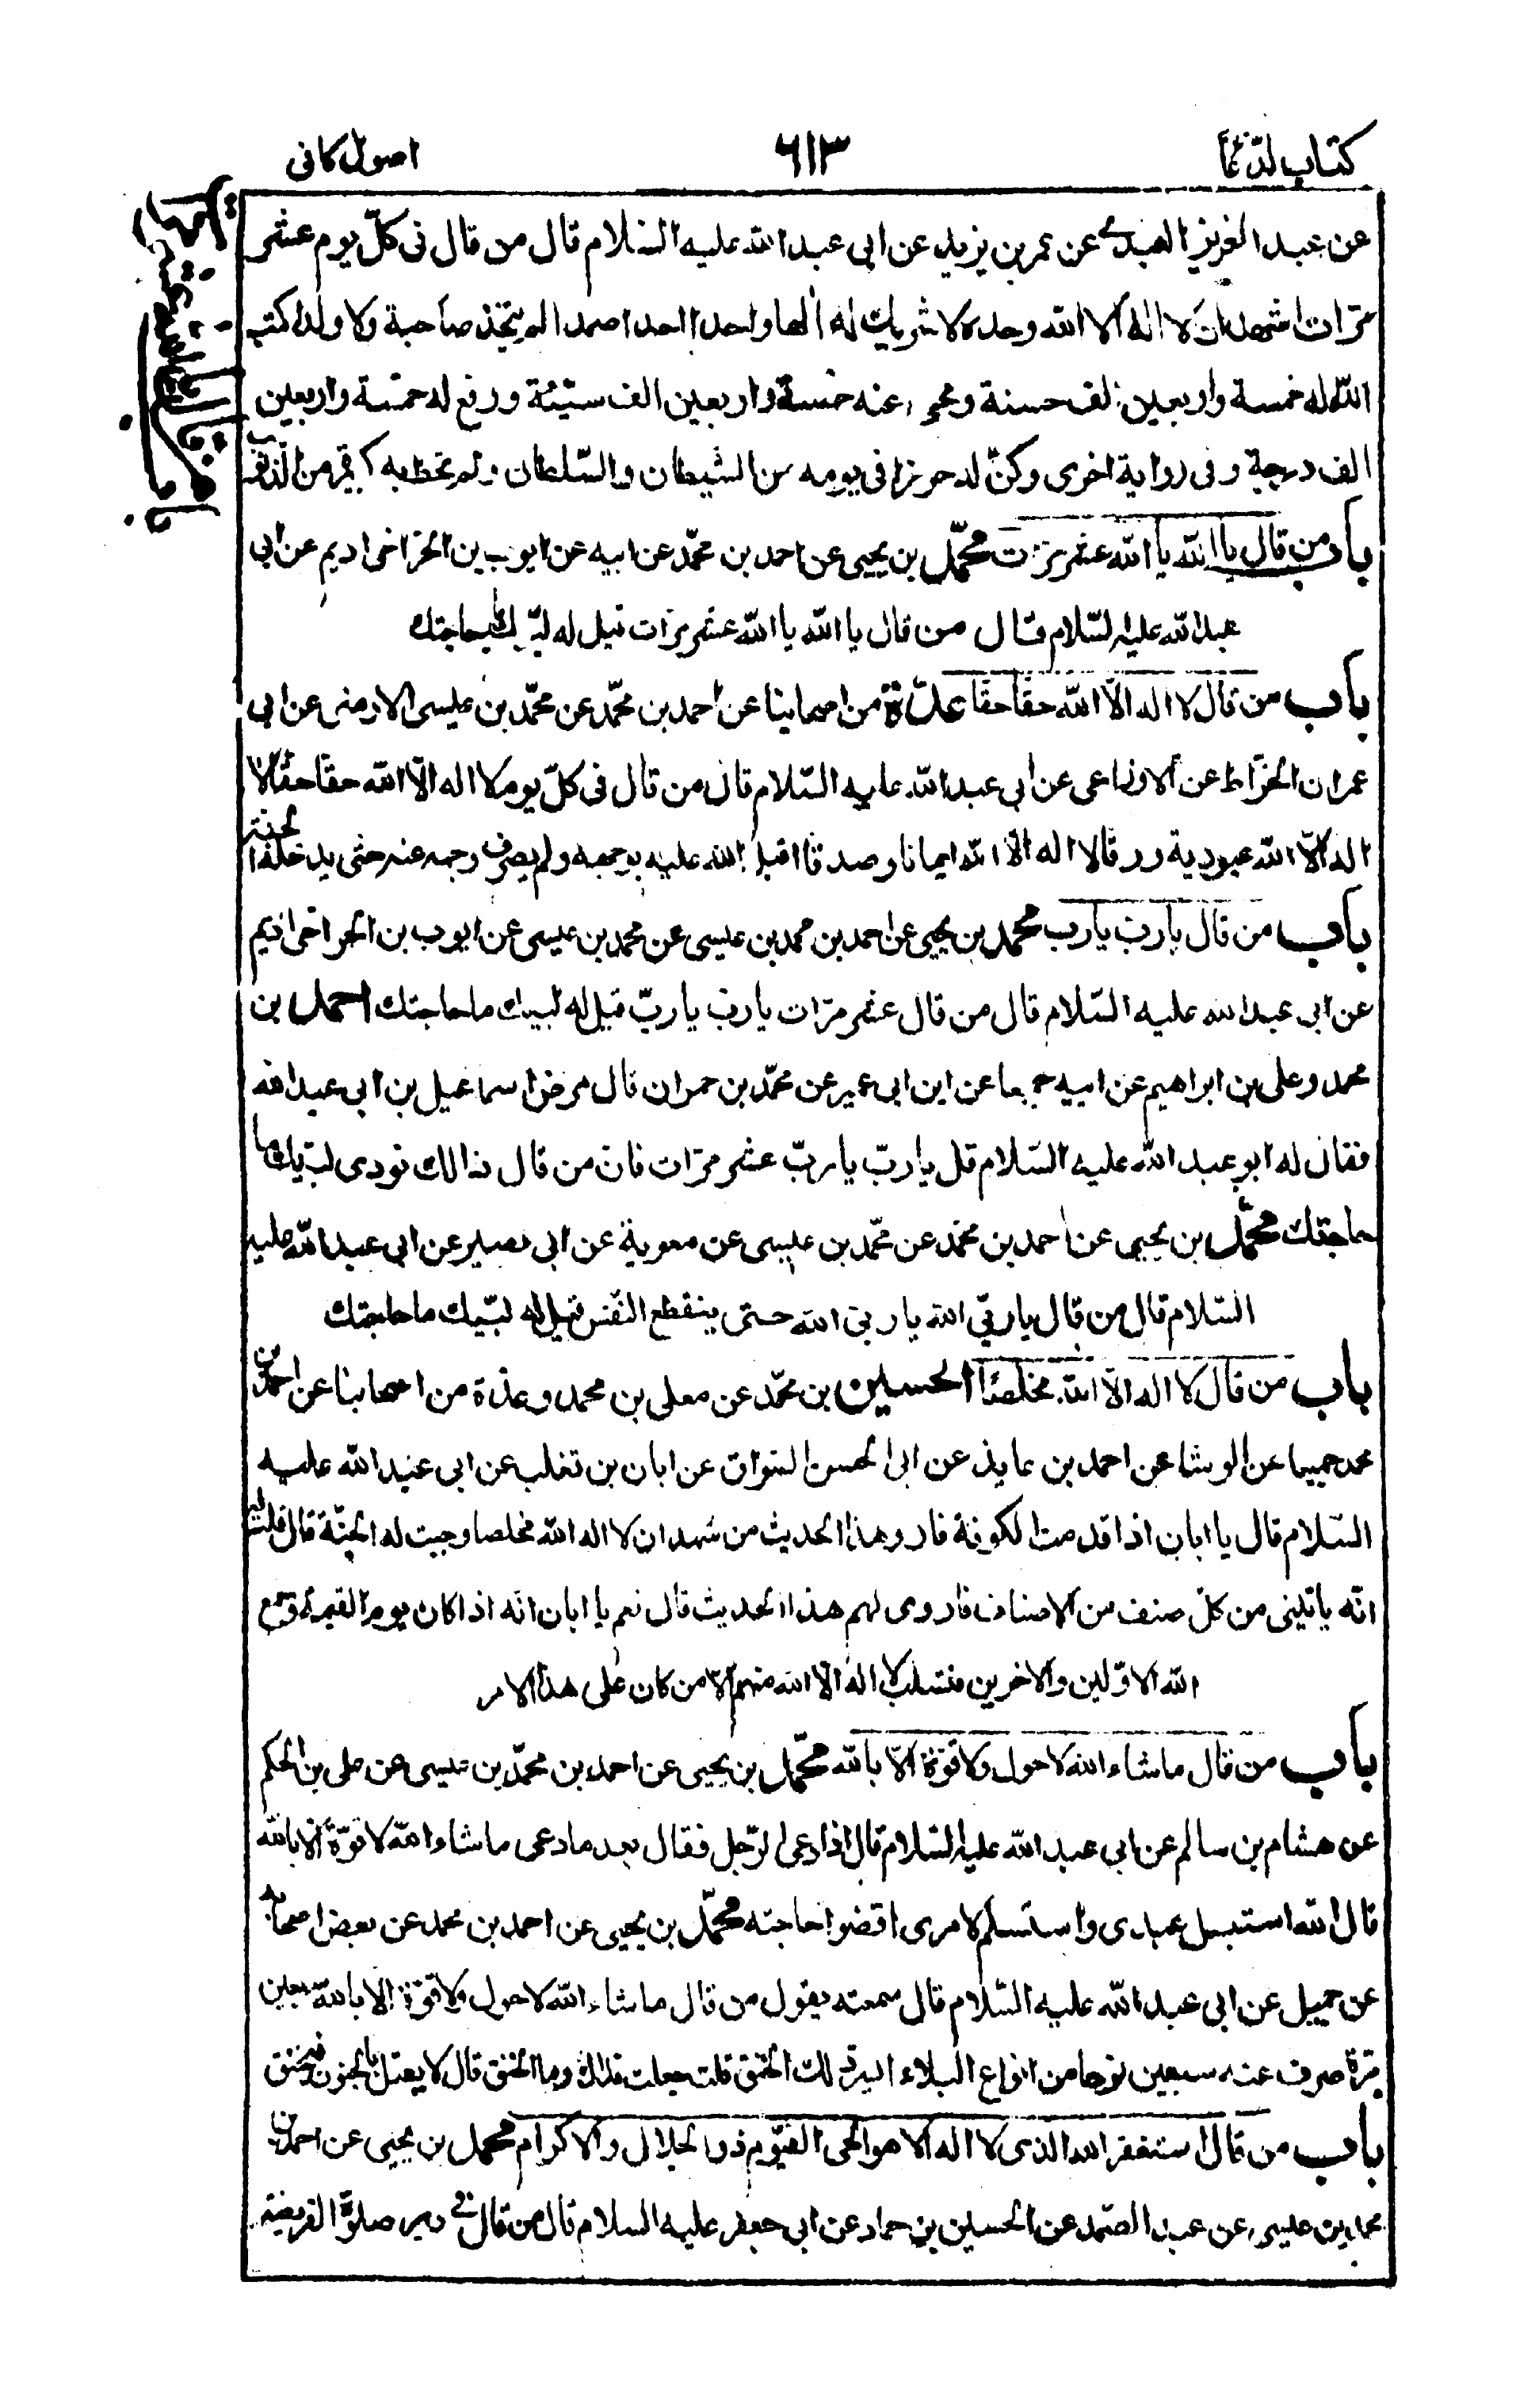 كتاب الدعاء
٦١٣
اصول كافى
عن عبد العزيز العبدى عن عمر بن يزيد عن ابى عبد الله عليه السلام قال من قال فى كلّ يوم عشر
مرّات اشهد ان لا اله الا الله وحده لا شريك له الها واحدا احدا صمدا لم يتخذ صاحبة ولا ولدا كتب
الله له خمسة واربعين الف حسنة ومحى عنه خمسة واربعين الف سيّئة ورفع له خمسة واربعين
الف درجة وفى رواية اخرى وكنّ له حرزا فى يومه من الشيطان والسّلطان ولم تحط به كبيرة من الذنوب
باب من قال يا الله يا الله عشر مرّات محمّد بن يحيى عن احمد بن محمّد عن ابيه عن ايوب بن الحر اخى اديم عن ابى
عبد الله عليه السّلام قال من قال يا الله يا الله عشر مرّات قيل له لبّيك ما حاجتك
باب من قال لا اله الّا الله حقّا حقّا عدّة من اصحابنا عن احمد بن محمّد عن محمّد بن عيسى الارمنى عن ابى
عمران الخرّاط عن الاوزاعى عن ابى عبد الله عليه السّلام قال من قال فى كلّ يوم لا اله الّا الله حقّا حقّا لا
اله الّا الله عبودية ورقا لا اله الّا الله ايمانا وصدقا اقبل الله عليه بوجهه ولم يصرف وجهه عنه حتى يدخله الجنّة
باب من قال يا ربّ يا ربّ محمد بن يحيى عن احمد بن محمد بن عيسى عن محمد بن عيسى عن ايوب بن الحر اخى اديم
عن ابى عبد الله عليه السّلام قال من قال عشر مرّات يا ربّ يا ربّ قيل له لبيك ما حاجتك احمد بن
محمد وعلى بن ابراهيم عن ابيه جميعا عن ابن ابى عمير عن محمّد بن حمران قال مرض اسماعيل بن ابى عبد الله
فقال له ابو عبد الله عليه السّلام قل يا ربّ يا ربّ عشر مرّات فان من قال ذالك نودى لبّيك ما
حاجتك محمّد بن يحيى عن احمد بن محمّد عن محمّد بن عيسى عن معوية عن ابى بصير عن ابى عبد الله عليه
السّلام قال من قال يا ربّى الله يا ربى الله حتى ينقطع النّفس قيل له لبّيك ما حاجتك
باب من قال لا اله الّا الله مخلصًا الحسين بن محمّد عن معلى بن محمد وعدّة من اصحابنا عن احمد بن
محمد جميعا عن الوشا عن احمد بن عايذ عن ابى الحسن السّواق عن ابان بن تغلب عن ابى عبد الله عليه
السّلام قال يا ابان اذا قدمت الكوفة فارو هذا الحديث من شهد ان لا اله الا الله مخلصا وجبت له الجنّة قال قلت له
انّه ياتينى من كلّ صنف من الاصناف فاروى لهم هذا الحديث قال نعم يا ابان انّه اذا كان يوم القيمة وجمع
الله الاوّلين والاخرين فتسلب لا اله الّا الله منهم الّا من كان على هذا الامر
باب من قال ما شاء الله لا حول ولا قوّة الّا بالله محمّد بن يحيى عن احمد بن محمّد بن عيسى عن على بن الحكم
عن هشام بن سالم عن ابى عبد الله عليه السّلام قال اذا دعى الرّجل فقال بعد ما دعى ما شاء الله لا قوّة الّا بالله
قال الله استبسل عبدى واستسلم لامرى اقضوا حاجته محمّد بن يحيى عن احمد بن محمد عن بعض اصحابه
عن جميل عن ابى عبد الله عليه السّلام قال سمعته يقول من قال ما شاء الله لا حول ولا قوّة الا بالله سبعين
مرّة صرف عنه سبعين نوعا من انواع البلاء ايسر ذلك الخنق قلت جعلت فداك وما الخنق قال لا يعتل بالجنون فيخنق
باب من قال استغفر الله الذى لا اله الا هو الحى القيّوم ذو الجلال والاكرام محمد بن يحيى عن احمد بن
محمد بن عيسى عن عبد الصّمد عن الحسين بن حماد عن ابى جعفر عليه السلام قال من قال فى دبر صلوة الفريضة